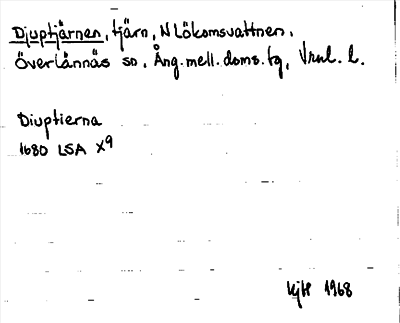 Djuptjärnen, tjärn, N Lökomsvattnen,
Överlännäs sn, Ång. mell. doms. tg, Vrnl. l.
Diuptierna
1680 LSA X9
1968